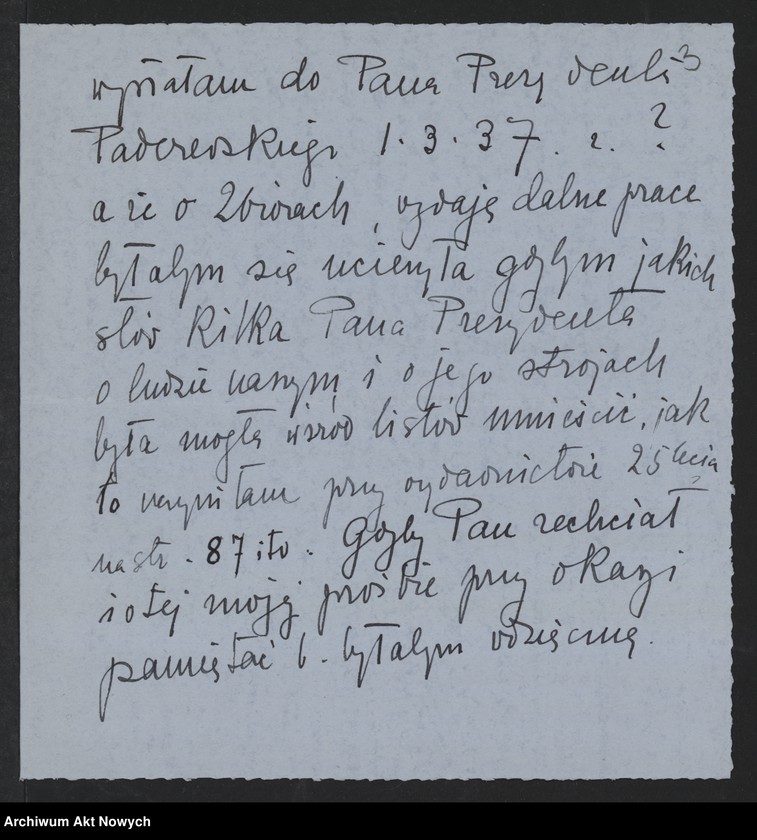 3
wysłałam do Pana Prezydenta
Paderewskiego 1.3.37. r. ?
a że o Zbiorach, wydają dalne prace
byłabym się ucieszyła gdybym jakich
słów kilka Pana Prezydenta
o ludzie naszym i o jego strojach
była mogła wśród listów umieścić, jak
to uczyniłam przy wydawnictwie 25lecia
na str. 87 i to. Gdyby Pan zechciał
i o tej mojej prośbie przy okazji
pamiętać b. byłabym wdzięczną.
Archiwum Akt Nowych